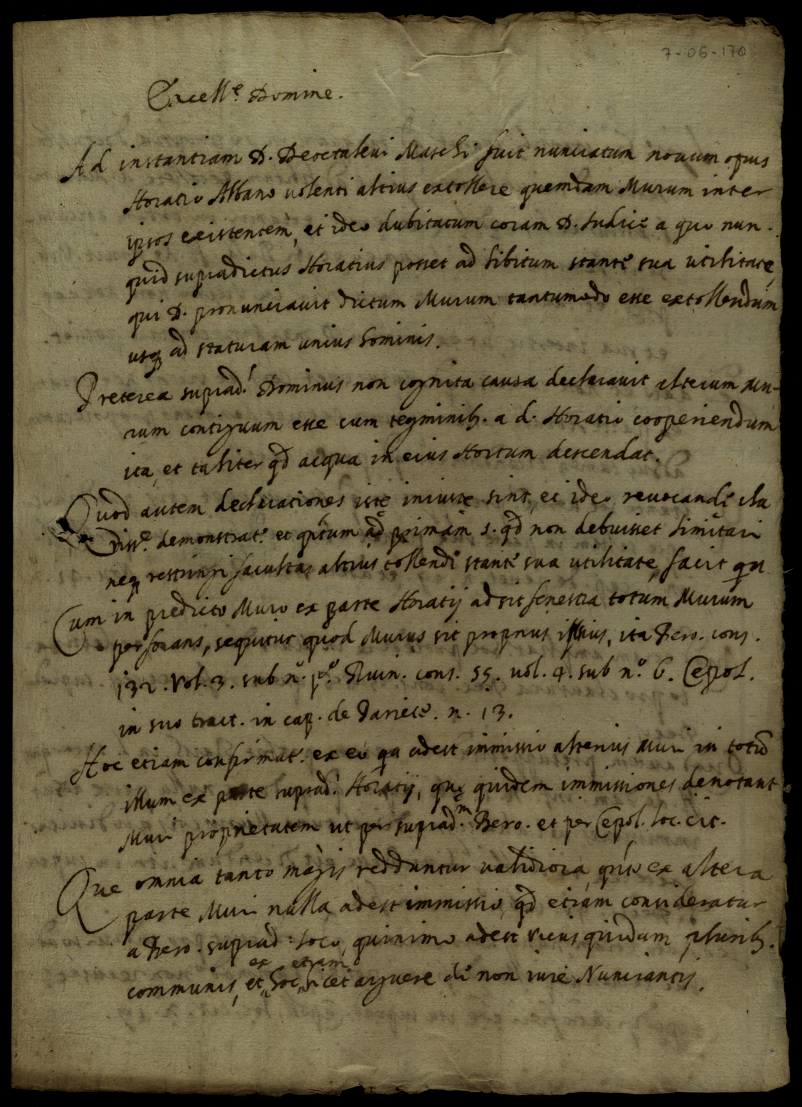 7-06-170
Excell.e Domine.
Ad instantiam D. Deoctalevi Maschi fuit nunciatum novum opus
Horatio Albano volenti altius extollere quemdam Murum inter
ipsos existentem, et ideo dubitatum coram D. Iudice a quo nun-
quid supradictus Horatius posset ad libitum stante sua utilitate,
qui D. pronunciavit dictum Murum tantumodo esse extollendum
usq ad staturam unius hominis.
Preterea suprad.s Dominus non cognita causa declaravit alterum Mu-
rum contiguum esse cum tegminib. a d. Horatio cooperiendum
ita, et taliter qd acqua in eius Hortum descendat.
Quod autem declarationes iste iniuste sint, et ideo revocande ita
demonstrat. et qtum ad primam s. qd non debuisset limitari
neq restringi facultas altius tollendi stante sua utilitate, facit qa
Cum in predicto Muro ex parte Horatij adsit fenestra totum Murum
perforans, sequitur quod Murus sit proprius illius, ita Bero. cons.
132. vol. 3. sub n.o p.o Ruin. cons. 55. vol. 4. sub n.o 6. Cepol.
in suo tract. in cap. de Pariete. n. 13.
Hoc etiam confirmat. ex eo qa adest immissio alterius Muri in totu
illum ex parte suprad.i Horatij, que quidem immissiones denotant
Muri proprietatem ut per suprad.m Bero. et per Cepol. loc. cit.
Que omnia tanto magis redduntur validiora qto ex altera
parte Muri nulla adest immissio, qd etiam consideratur
a Bero. suprad. loco, quinimo adest vicus quidam plurib.
ex etiam
communis, et hoc licet arguere de non iure Nunciantis.